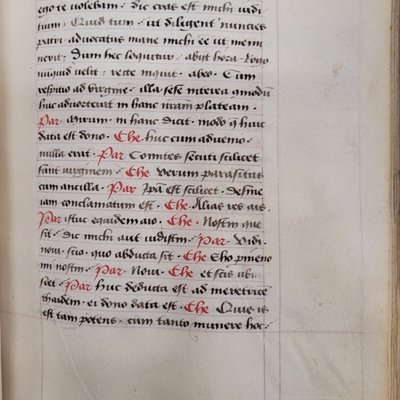 ego te volebam · dic cras est michi iudi
tium · Quid tum · ut diligent nuncies
patri · advocatus mane michi ee ut memi
nerit · Dum hec loquitur · abyt hora · Rogo
nu quid velit · recte inquit · abeo · Cum
respitio ad virgine · illa sese interea comodum
huc advorterat in hanc nram plateam ·
Par · mirum in hanc dicat · modo q huic
data est dono · Che huc cum advenio
nulla erat · Par Comites secuti scilicet
sunt virginem · Che Verum parasitus
cum ancilla · Par Ipa est scilicet · desine
iam conclamatum est · Che · Alias res agis ·
Par istuc equidem aio · Che · Nostin que
sit · dic michi aut vidistin · Par · Vidi ·
novi · scio · quo abducta sit · Che Eho pmeno
mi nostin · Par · Novi · Che et scis ubi
siet · Par huc deducta est ad meretrice
thaidem · ei dono data est · Che Quis is
est tam potens · cum tanto munere hoc ·